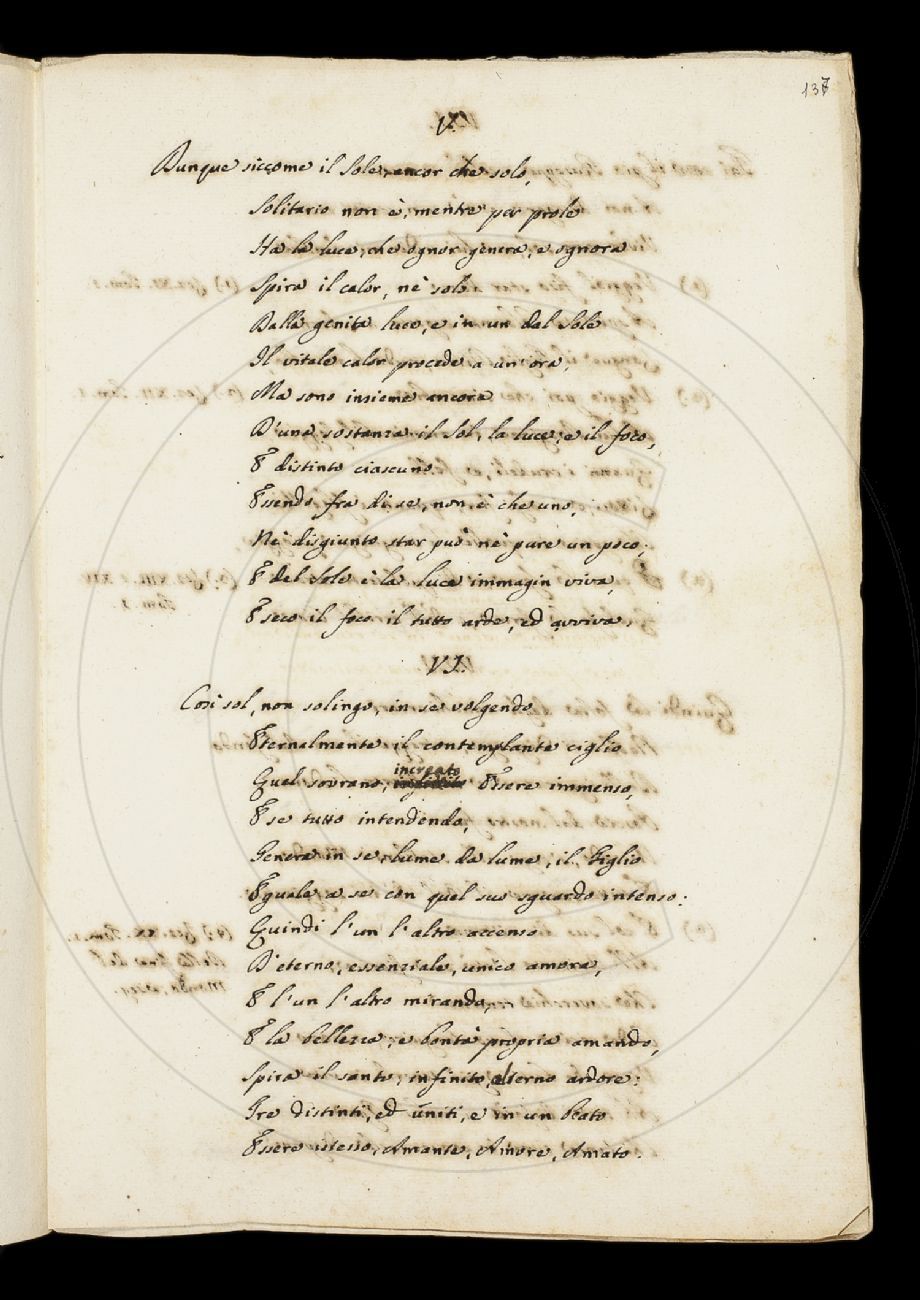 137
V.
Dunque siccome il Sole, ancor che solo,
Solitario non è, mentre per prole
Ha la luce, che ognor genera, e ognora
Spira il calor, nè solo
Dalla genita luce, e in un dal Sole
Il vitale calor procede a un'ora;
Ma sono insieme ancora
D'una sostanza il Sol, la luce, e il foco,
E distinto ciascuno
Essendo fra di se, non è che uno,
Nè disgiunto star può nè pure un poco;
E del Sole è la luce immagin viva,
E seco il foco il tutto arde, ed avviva.
VI.
Così sol, non solingo, in se volgendo
Eternalmente il contemplante ciglio
Quel sovrano, increato Essere immenso,
E se tutto intendendo,
Genera in se, lume da lume, il Figlio
Eguale a se con quel suo sguardo intenso:
Quindi l'un l'altro accenso
D'eterno, essenziale, unico amore,
E l'un l'altro mirando,
E la bellezza, e bontà propria amando,
Spira il santo, infinito, alterno ardore:
Tre distinti, ed uniti, e in un beato
Essere istesso, Amante, Amore, Amato.